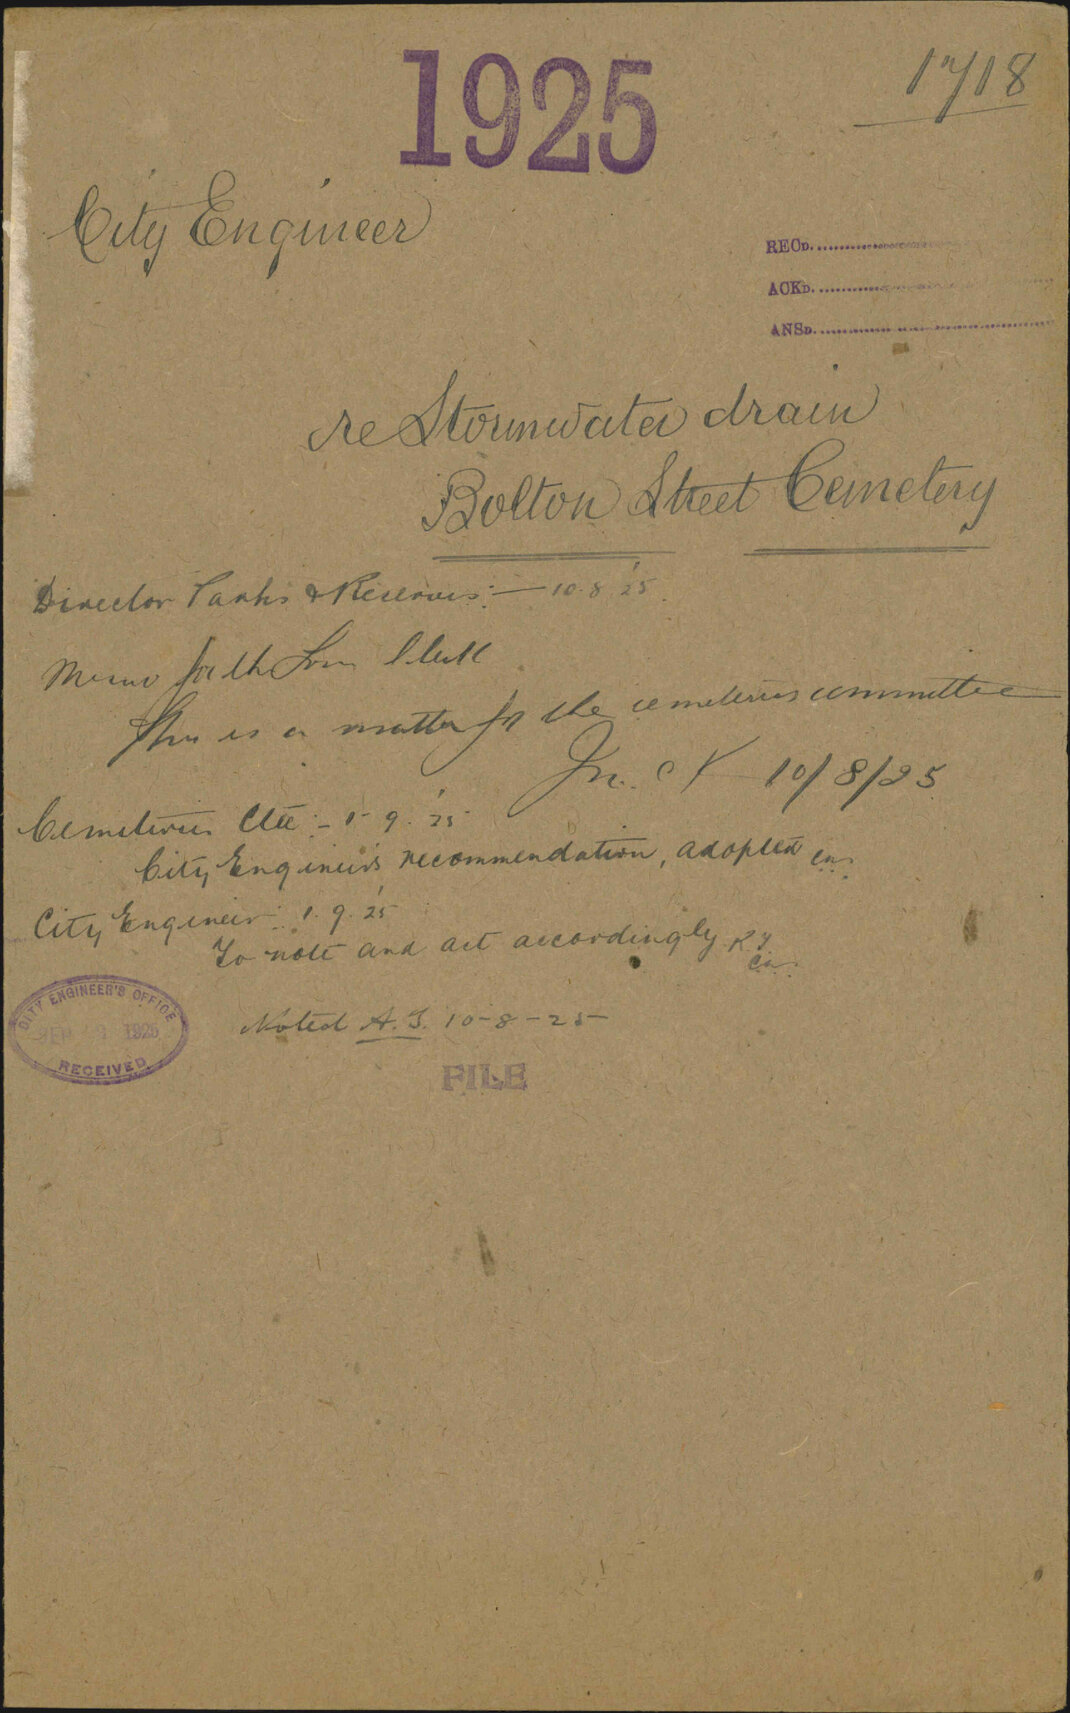 1925
1718
City Engineer
RECD.
ACKD.
ANSD.
re Stormwater drain
Bolton Street Cemetery
Director Parks & Reserves:— 10.8.'25
Memo for the Town Clerk
This is a matter for the cemeteries committee
10/8/25
Cemeteries Ctee:- 1.9.'25
City Engineer's recommendation, adopted
City Engineer: 1.9.'25
To note and act accordingly
CITY ENGINEER'S OFFICE
SEP 1925
RECEIVED
Noted A.J. 10-8-25
FILE